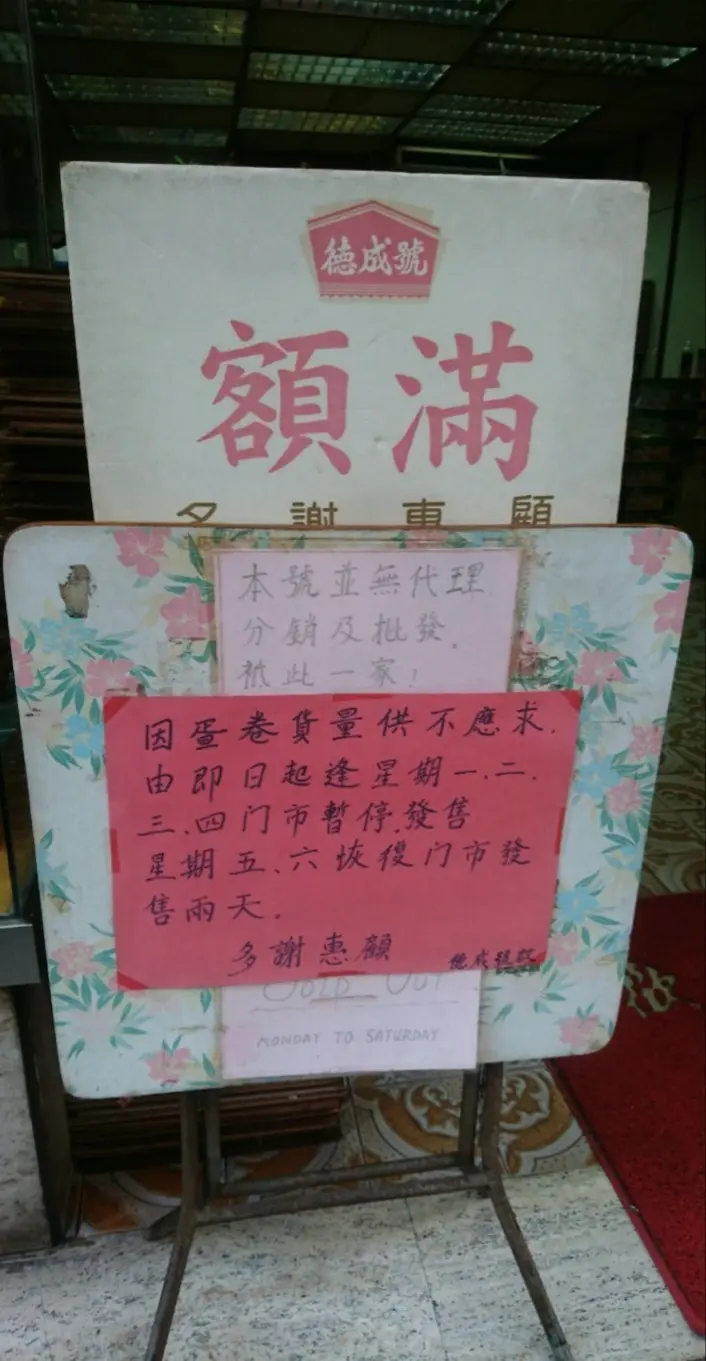 德成號
額滿
多謝惠顧
本號並無代理
分銷及批發.
祗此一家!
因蛋卷貨量供不應求.
由即日起逢星期一.二.
三.四门市暫停.發售
星期五、六恢復门市發
售兩天.
多謝惠顧 德成號啟
SOLD OUT
MONDAY TO SATURDAY